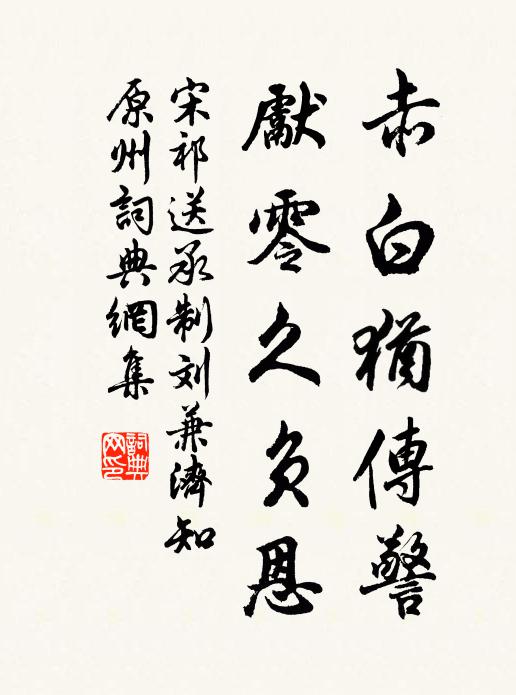 赤白猶傳警
獻零久負恩
宋祁送承制刘兼濟知
原州詞典網集
詞典網印